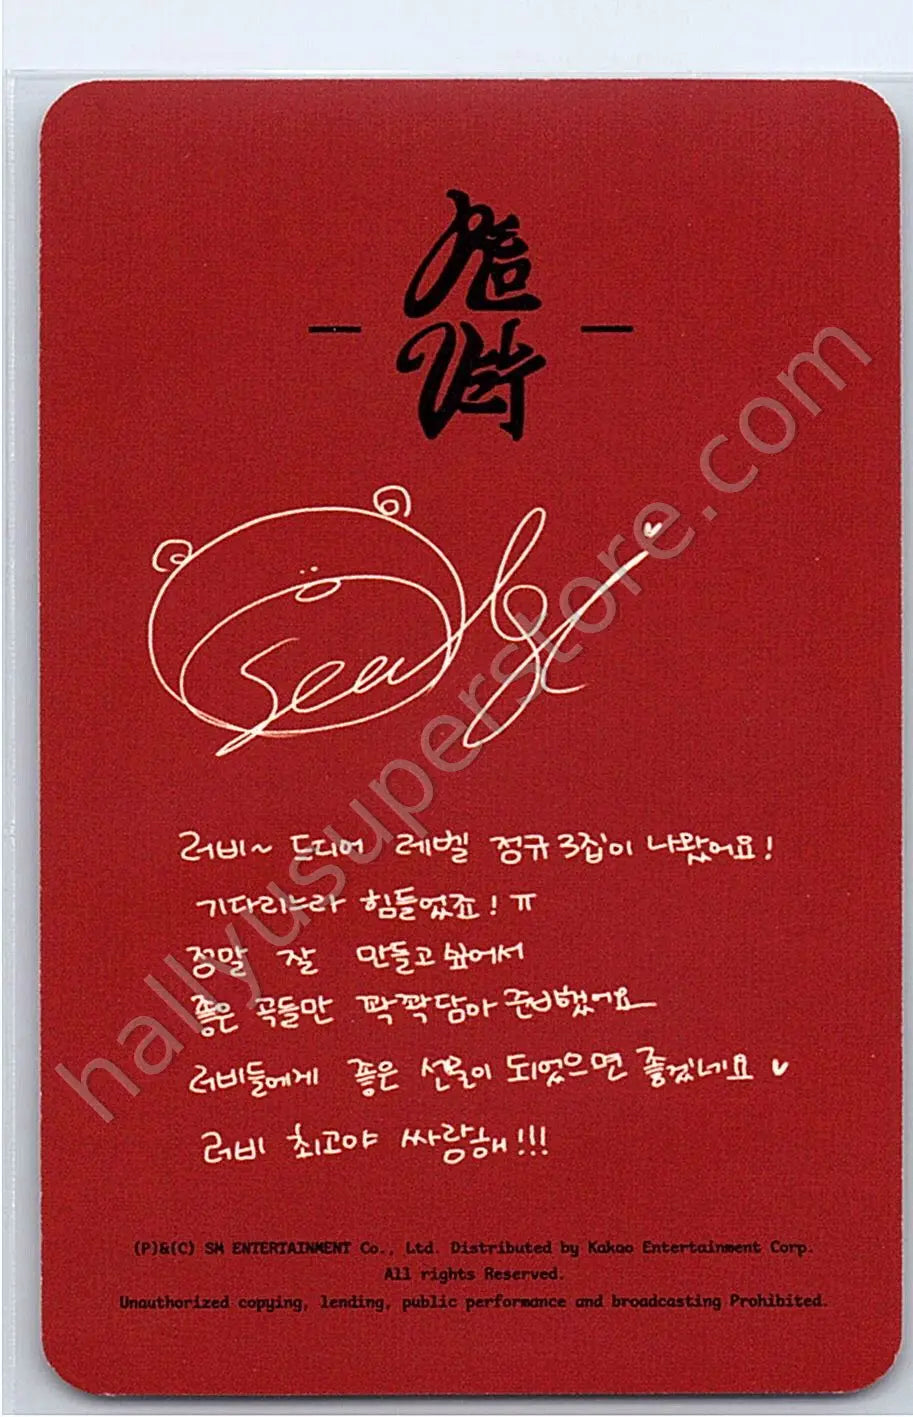 Seulgi
러비~ 드디어 레벨 정규 3집이 나왔어요!
기다리느라 힘들었죠! ㅠ
정말 잘 만들고 싶어서
좋은 곡들만 꽉꽉담아 준비했어요
러비들에게 좋은 선물이 되었으면 좋겠네요 ♥
러비 최고야 싸랑해!!!
(P)&(C) SM ENTERTAINMENT Co., Ltd. Distributed by Kakao Entertainment Corp.
All rights Reserved.
Unauthorized copying, lending, public performance and broadcasting Prohibited.
hallyusuperstore.com